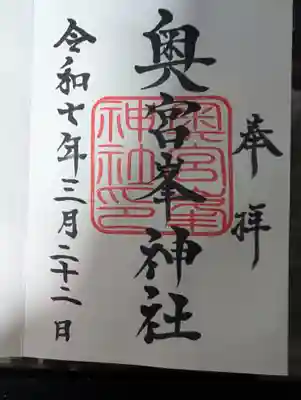 奉拝
奥宮峯神社
奥宮峯
神社印
令和七年三月二十二日